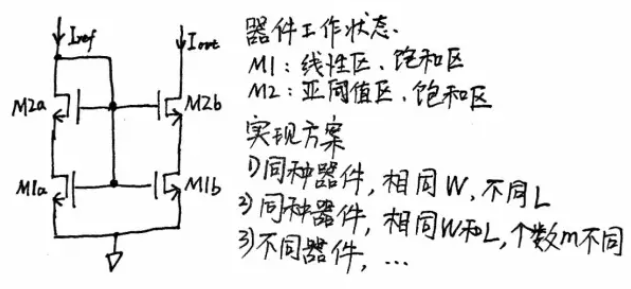 Iref
Iout
M2a
M2b
M1a
M1b
器件工作状态.
M1: 线性区、饱和区
M2: 亚阈值区、饱和区
实现方案
1)同种器件, 相同W, 不同L
2)同种器件, 相同W和L, 个数m不同
3)不同器件, ...